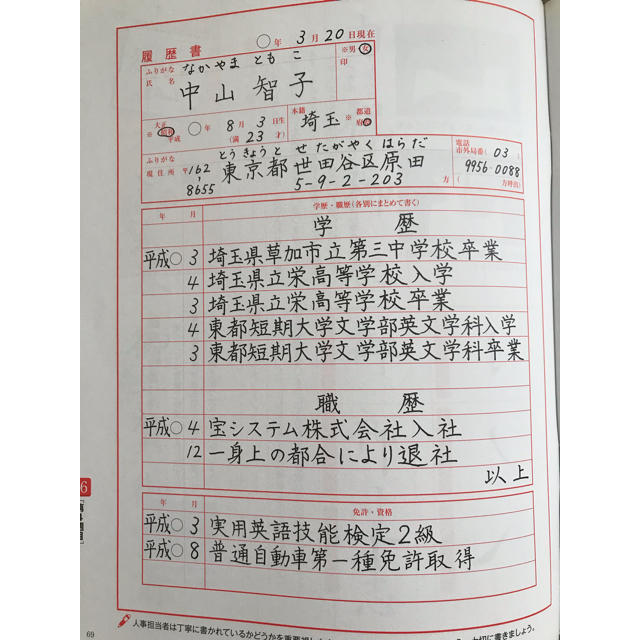 履歴書
○年 3月20日現在
ふりがな なかやま ともこ
※男・女
氏名 中山 智子
印
※ 大正 昭和 平成 ○年 8月3日生 (満23才)
本籍 埼玉 ※ 都道府県
ふりがな とうきょうと せたがやくはらだ
現住所 〒162-8655 東京都世田谷区原田
5-9-2-203 方
電話
市外局番(03)
9956-0088
(方呼出)
年 月 学歴・職歴(各別にまとめて書く)
学 歴
平成○ 3 埼玉県草加市立第三中学校卒業
4 埼玉県立栄高等学校入学
3 埼玉県立栄高等学校卒業
4 東都短期大学文学部英文学科入学
3 東都短期大学文学部英文学科卒業
職 歴
平成○ 4 宝システム株式会社入社
12 一身上の都合により退社
以上
年 月 免許・資格
平成○ 3 実用英語技能検定2級
平成○ 8 普通自動車第一種免許取得
人事担当者は丁寧に書かれているかどうかを重要視し
切に書きましょう。
69
6